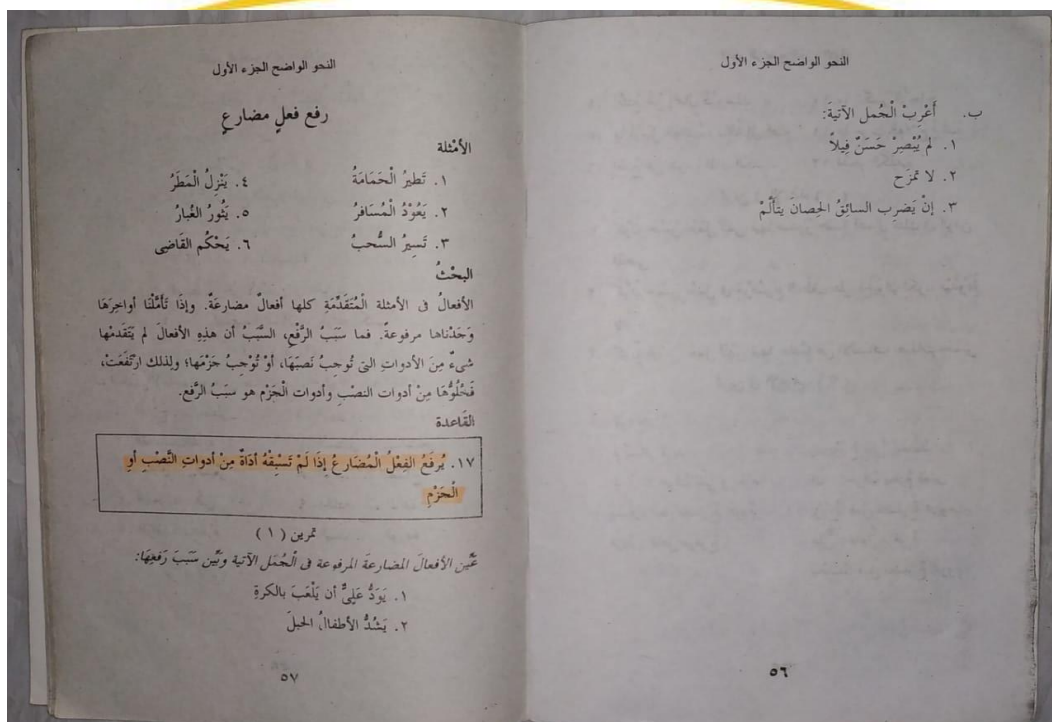 النحو الواضح الجزء الأول
ب. أَعْرِبْ الْجُمل الآتية:
١. لم يُبْصِرْ حَسَنٌ فِيلاً
٢. لا تمزَح
٣. إنْ يَضرِب السائِقُ الحِصانَ يتأَلَّمْ
٥٦
النحو الواضح الجزء الأول
رفع فعلٍ مضارعٍ
الأمْثلة
١. تَطيرُ الْحَمَامَةُ ٤. يَنْزِلُ الْمَطَرُ
٢. يَعُوْدُ الْمُسَافرُ ٥. يَثُورُ الغُبارُ
٣. تَسِيرُ السُّحبُ ٦. يَحْكُم القَاضِى
البحْثُ
الأفعالُ فى الأمثلة الْمُتَقَدِّمَةِ كلها أفعالٌ مضارعَةٌ. وإذَا تَأَمَّلْنَا أواخِرَهَا
وَجَدْناها مرفوعةً. فما سَبَبُ الرَّفْعِ، السَّبَبُ أن هذهِ الأفعالَ لم يَتَقدمْها
شىءٌ مِنَ الأدواتِ التىْ تُوجِبُ نَصبَهَا، أوْ تُوْجِبُ جَزْمَها؛ ولِذلك ارْتَفَعَتْ،
فَخُلُوُّهَا مِنْ أدوات النصْبِ وأدوات الْجَزْمِ هو سَبَبُ الرَّفع.
القَاعدة
١٧. يُرفَعُ الفِعْلُ الْمُضَارعُ إِذَا لَمْ تَسْبِقْهُ أدَاةٌ مِنْ أدواتِ النَّصْبِ أوِ
الْجَزْمِ
تمرين ( ١ )
عَيِّن الأفعالَ المضارعةَ المرفوعة فى الْجُمَل الآتية وبَيِّن سَبَبَ رَفعِهَا:
١. يَوَدُّ عَلِىٌّ أن يَلْعَبَ بالكرةِ
٢. يَشُدُّ الأطفالُ الحبلَ
٥٧